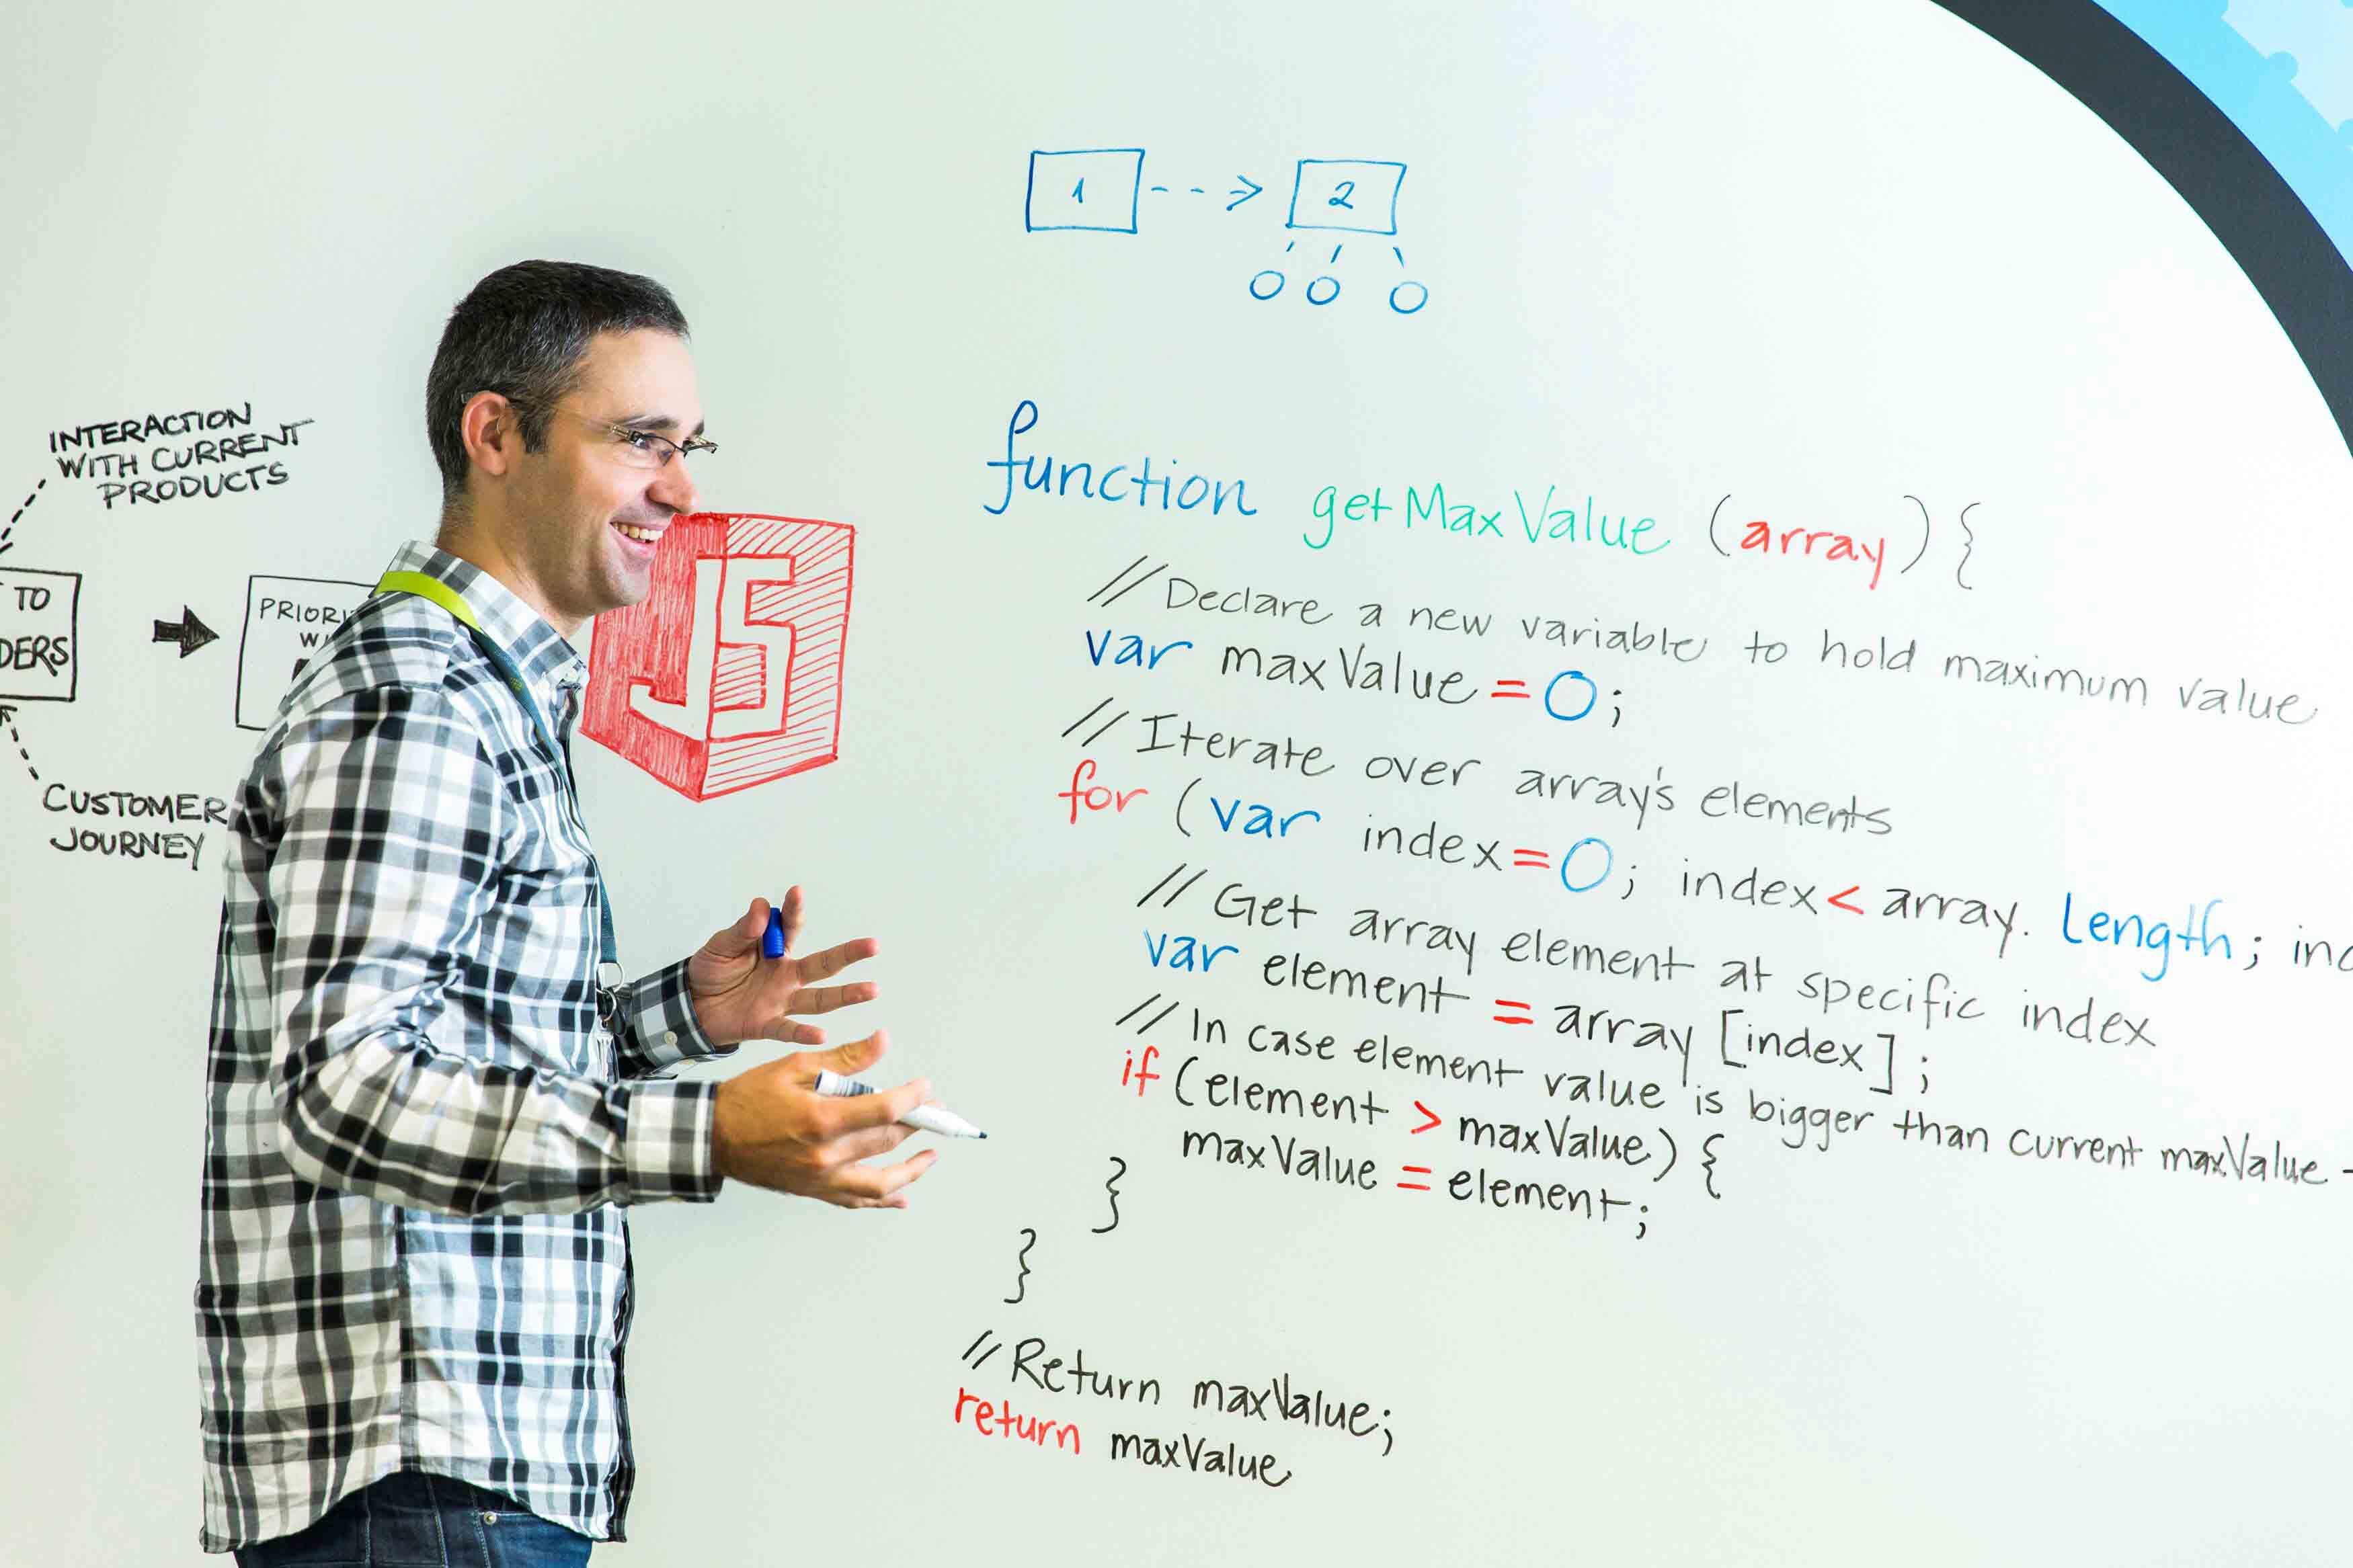 1
2
INTERACTION
WITH CURRENT
PRODUCTS
TO
CUSTOMER
JOURNEY
JS
function getMaxValue (array) {
// Declare a new variable to hold maximum value
var maxValue = 0;
// Iterate over array's elements
for (var index = 0; index < array. Length;
// Get array element at specific index
var element = array [index];
// In case element value is bigger than current maxValue -
if (element > maxValue) {
maxValue = element;
}
}
// Return maxValue;
return maxValue